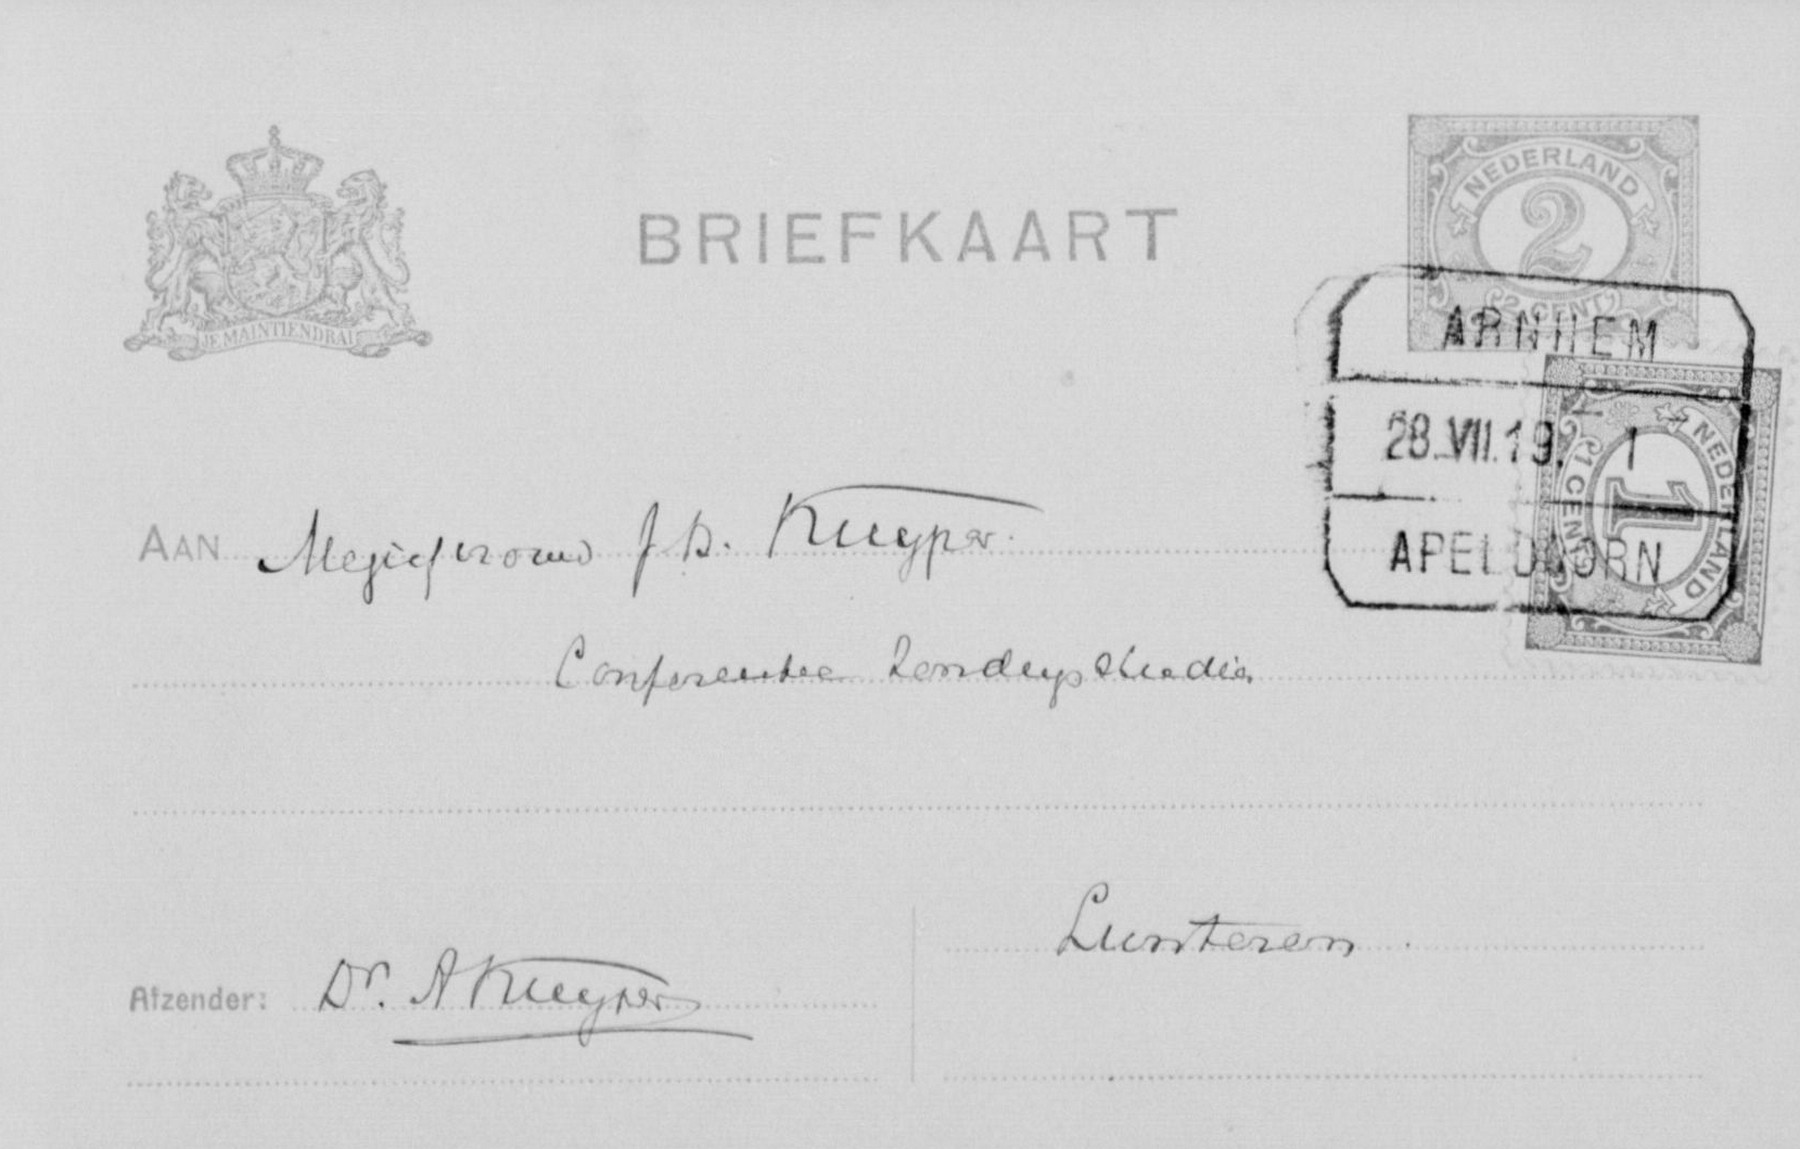 BRIEFKAART
JE MAINTIENDRAI
NEDERLAND
2
2 CENT
ARNHEM
28.VII.19. 1
APELDOORN
NEDERLAND
1
1 CENT
AAN Mejufvrouw J H. Kuyper.
Conferentie Zendingsstudie
Lunteren.
Afzender: Dr. A Kuyper